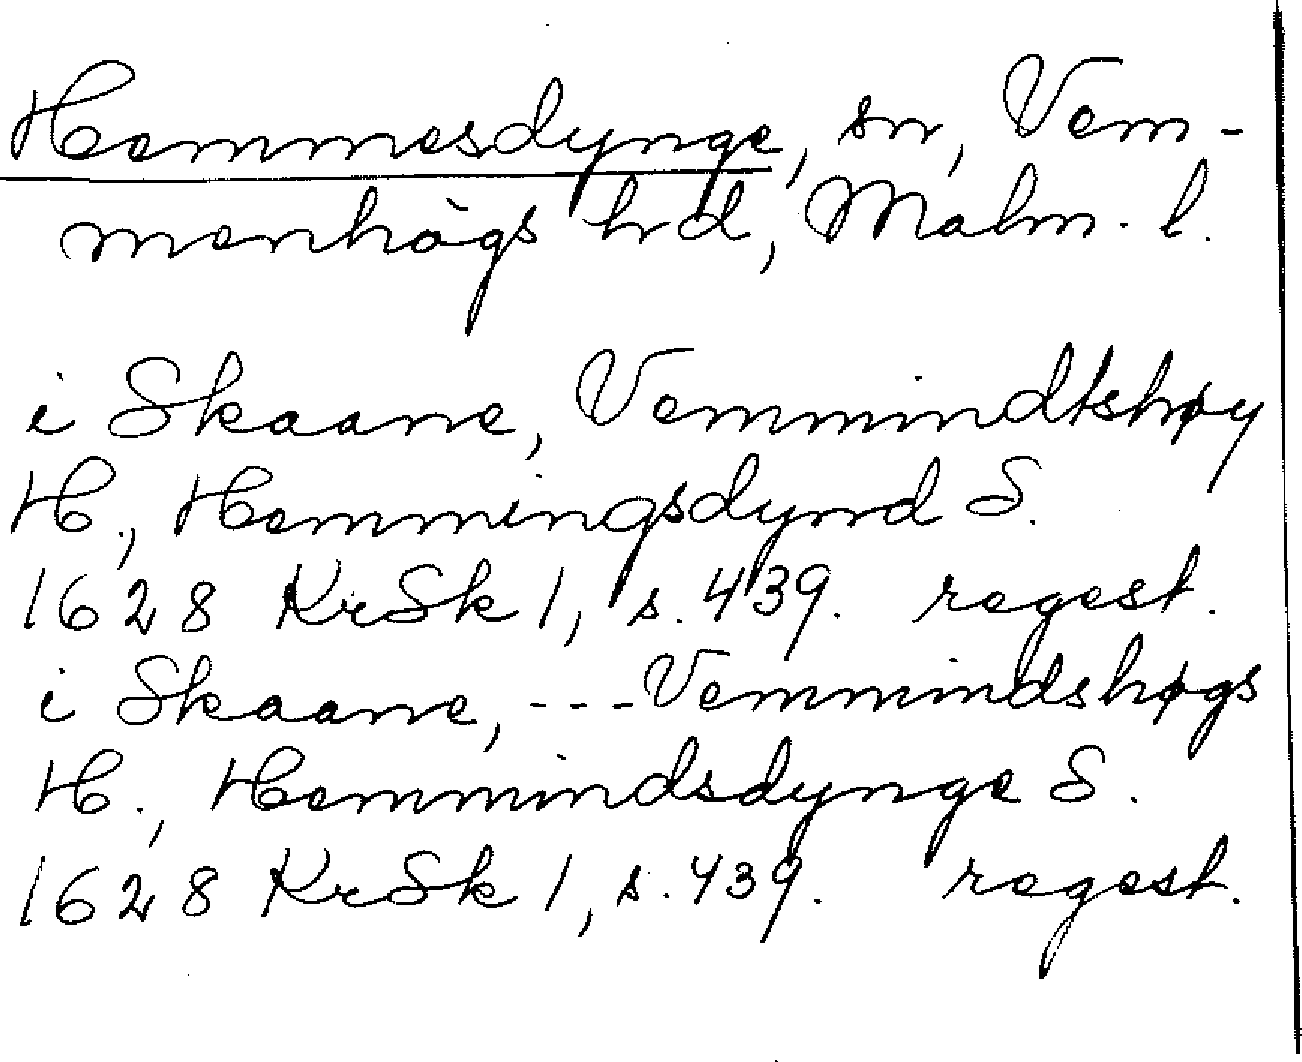 Hemmesdynge, sn, Vem-
menhögs hrd, Malm. l.
i Skaane, Vemmindtshøy
H., Hemmingsdynd S.
1628 KrSk 1, s. 439. regest.
i Skaane, --- Vemmindshøgs
H., Hemmindsdynge S.
1628 KrSk 1, s. 439. regest.